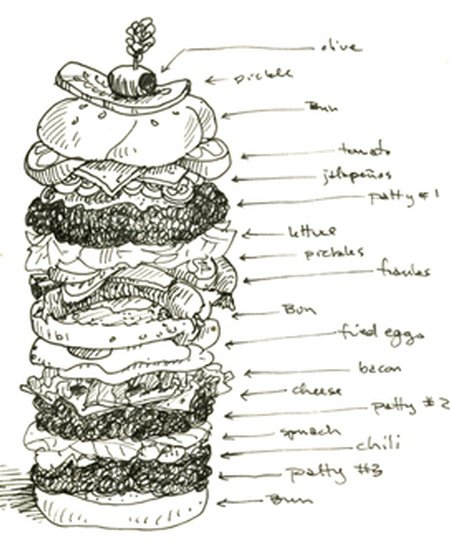 olive
pickle
Bun
tomato
jalapeños
patty #1
lettuce
pickles
franks
Bun
fried eggs
bacon
cheese
patty #2
spinach
chili
patty #3
Bun